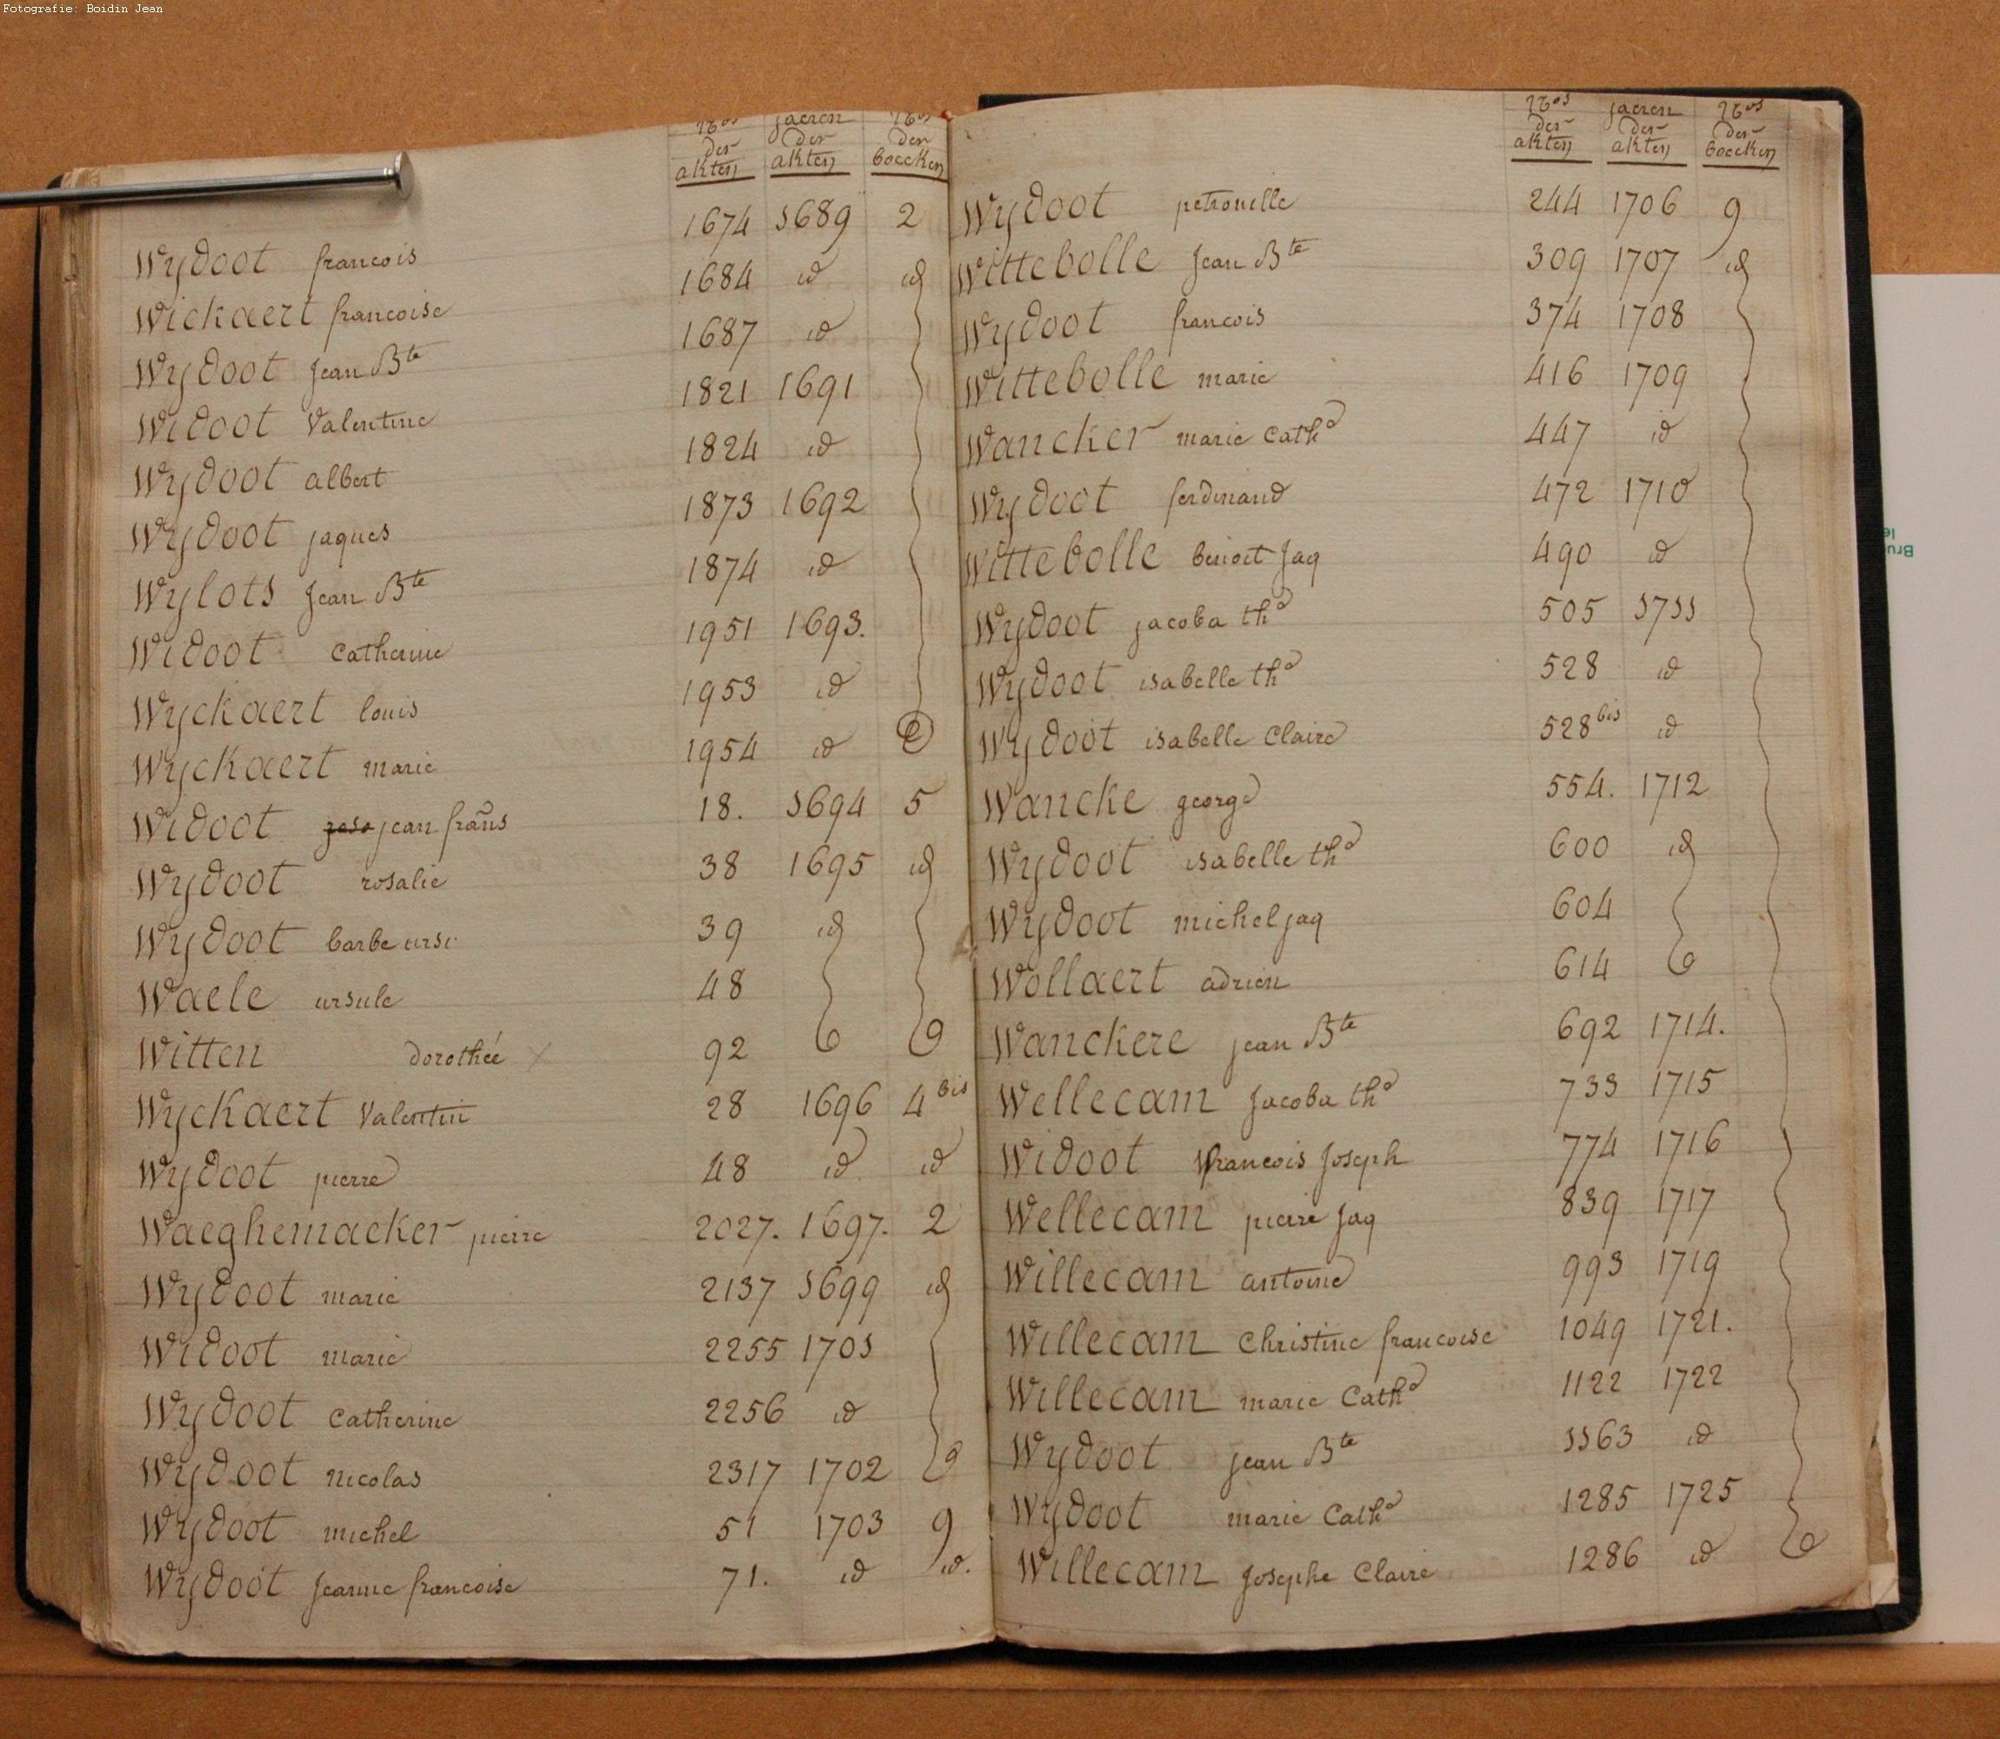 Fotografie: Boidin Jean
Nos der akten jaeren der akten Nos der boecken
Wydoot francois 1674 1689 2
Wickaert francoise 1684 id id
Wydoot Jean Bte 1687 id
Widoot Valentine 1821 1691
Wydoot albert 1824 id
Wydoot jaques 1873 1692
Wylots Jean Bte 1874 id
Widoot Catherine 1951 1693.
Wyckaert louis 1953 id
Wyckaert marie 1954 id
Widoot jean frans 18. 1694 5
Wydoot rosalie 38 1695 id
Wydoot barbe urs. 39 id
Waele ursule 48
Witten dorothée 92
Wyckaert Valentin 28 1696 4 bis
Wydoot pierre 48 id id
Waeghemacker pierre 2027. 1697. 2
Wydoot marie 2137 1699 id
Widoot marie 2255 1701
Wydoot Catherine 2256 id
Wydoot nicolas 2317 1702
Wydoot michel 51 1703 9
Wydoot Jeanne francoise 71. id id.
Nos der akten jaeren der akten Nos der boecken
Wydoot petronille 244 1706 9
Wittebolle Jean Bte 309 1707 id
Wydoot francois 374 1708
Wittebolle marie 416 1709
Wancker marie Cathe 447 id
Wydoot ferdinand 472 1710
Wittebolle benoit Jaq 490 id
Wydoot jacoba the 505 1711
Wydoot isabelle the 528 id
Wydoot isabelle Claire 528 bis id
Wancke george 554. 1712
Wydoot isabelle the 600 id
Wydoot michel jaq 604
Wollaert adrien 614
Wanckere jean Bte 692 1714.
Wellecam Jacoba the 733 1715
Widoot francois Joseph 774 1716
Wellecam pierre Jaq 839 1717
Willecam antoine 993 1719
Willecam Christine francoise 1049 1721.
Willecam marie Cathe 1122 1722
Wydoot jean Bte 1163 id
Wydoot marie Cathe 1285 1725
Willecam Josephe Claire 1286 id